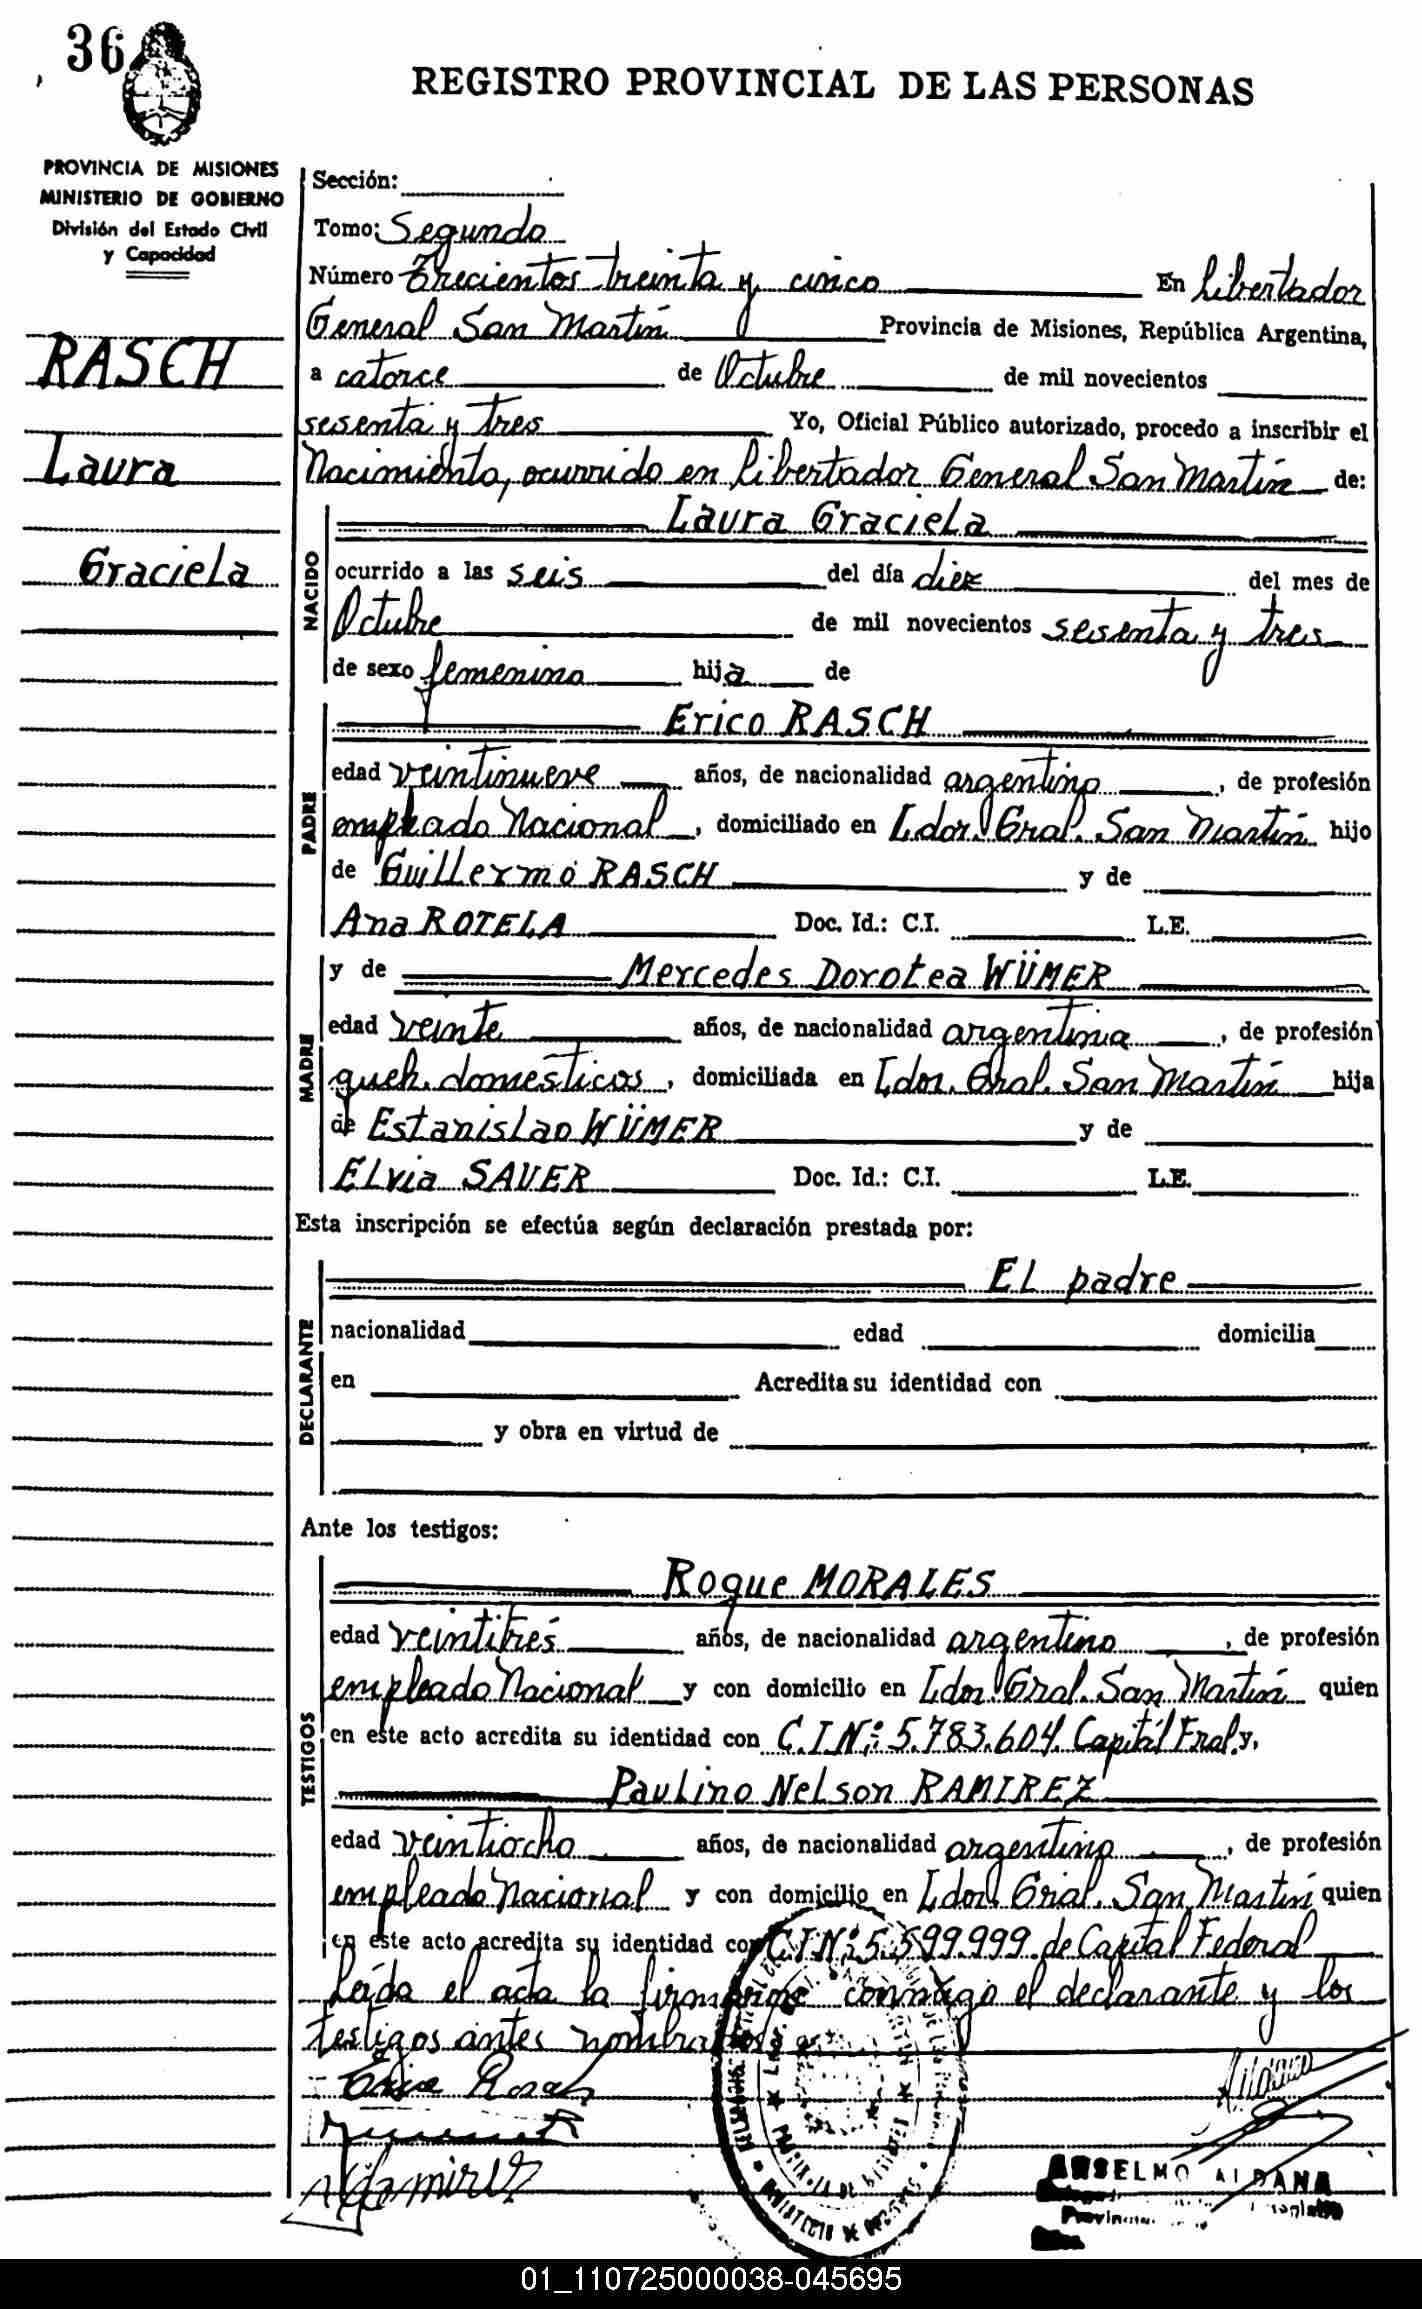 36
REGISTRO PROVINCIAL DE LAS PERSONAS
PROVINCIA DE MISIONES
MINISTERIO DE GOBIERNO
División del Estado Civil
y Capacidad
RASCH
Laura
Graciela
Sección:
Tomo: Segundo
Número Trecientos treinta y cinco En Libertador
General San Martín Provincia de Misiones, República Argentina,
a catorce de Octubre de mil novecientos
sesenta y tres Yo, Oficial Público autorizado, procedo a inscribir el
Nacimiento, ocurrido en Libertador General San Martín de:
NACIDO
Laura Graciela
ocurrido a las seis del día diez del mes de
Octubre de mil novecientos sesenta y tres
de sexo femenino hija de
PADRE
Erico RASCH
edad veintinueve años, de nacionalidad argentino, de profesión
empleado Nacional, domiciliado en Ldor. Gral. San Martín hijo
de Guillermo RASCH y de
Ana ROTELA Doc. Id.: C.I. L.E.
MADRE
y de Mercedes Dorotea WÜMER
edad veinte años, de nacionalidad argentina, de profesión
queh. domésticos, domiciliada en Ldor. Gral. San Martín hija
de Estanislao WÜMER y de
Elvia SAUER Doc. Id.: C.I. L.E.
Esta inscripción se efectúa según declaración prestada por:
DECLARANTE
El padre
nacionalidad edad domicilia
en Acredita su identidad con
y obra en virtud de
Ante los testigos:
TESTIGOS
Roque MORALES
edad veintitrés años, de nacionalidad argentino, de profesión
empleado Nacional y con domicilio en Ldor. Gral. San Martín quien
en este acto acredita su identidad con C.I.Nº: 5.783.604. Capital Fral. y,
Paulino Nelson RAMIREZ
edad veintiocho años, de nacionalidad argentino, de profesión
empleado Nacional y con domicilio en Ldor. Gral. San Martín quien
en este acto acredita su identidad con C.I.Nº: 5.599.999. de Capital Federal
Leída el acta la firman conmigo el declarante y los
testigos antes nombrados
MINISTERIO DE GOBIERNO
ANSELMO ALDANA
01_110725000038-045695